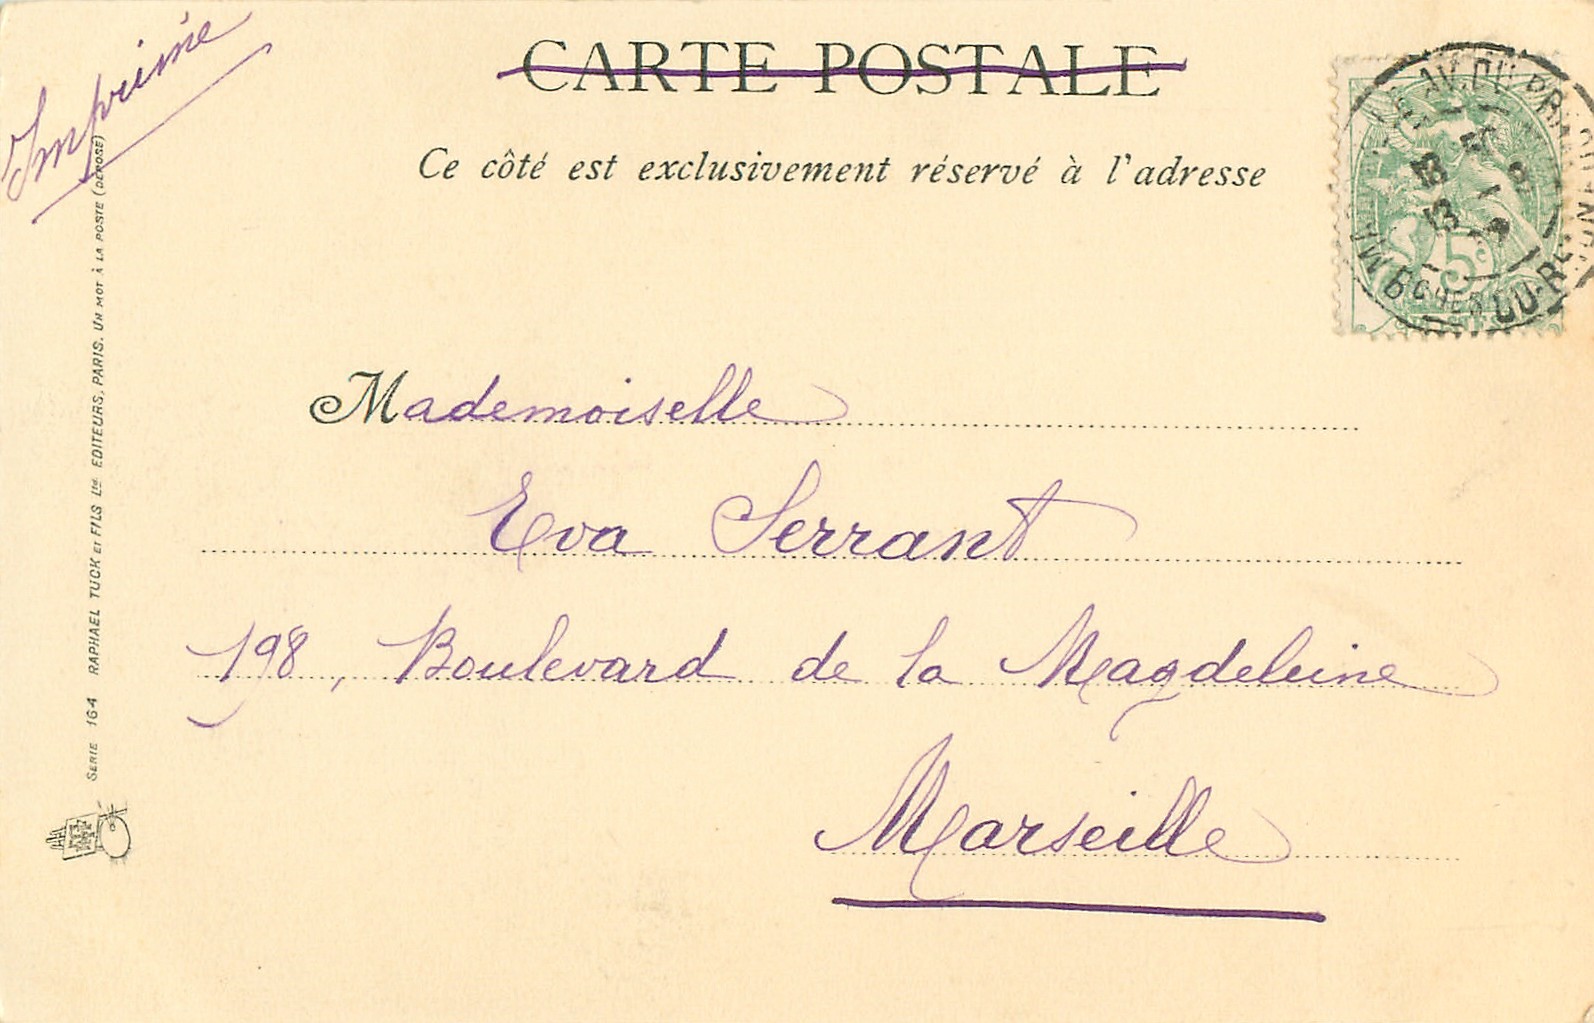 Imprimé
CARTE POSTALE
Ce côté est exclusivement réservé à l'adresse
Mademoiselle
Eva Serrant
198, Boulevard de la Magdeleine
Marseille
SERIE 164 RAPHAEL TUCK ET FILS LTD EDITEURS, PARIS. UN MOT À LA POSTE (DÉPOSÉ)
AV. DU PRA
18
13
BCHES DU-R
5c